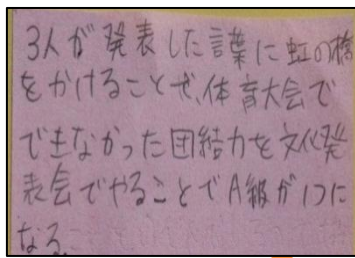 3人が発表した言葉に虹の橋
をかけることで、体育大会で
できなかった団結力を文化発
表会でやることでA級が1つに
なる。